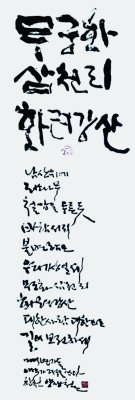 무궁화
삼천리
화려강산
남산위에
저 소나무
철갑을 두른듯
바람서리
불변함은
우리기상일세
무궁화 삼천리
화려강산
대한사람 대한으로
길이 보전하세